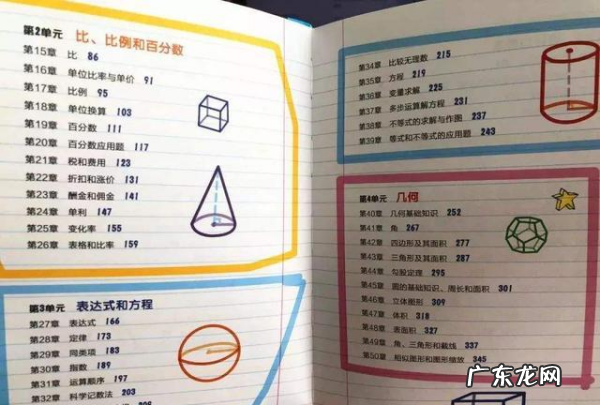 第2单元 比、比例和百分数
第15章 比 86
第16章 单位比率与单价 91
第17章 比例 95
第18章 单位换算 103
第19章 百分数 111
第20章 百分数应用题 117
第21章 税和费用 123
第22章 折扣和涨价 131
第23章 酬金和佣金 141
第24章 单利 147
第25章 变化率 155
第26章 表格和比率 159
第3单元 表达式和方程
第27章 表达式 166
第28章 定律 173
第29章 同类项 183
第30章 指数 189
第31章 运算顺序 197
第32章 科学记数法 203
第34章 比较无理数 215
第35章 方程 219
第36章 变量求解 225
第37章 多步运算解方程 231
第38章 不等式的求解与作图 237
第39章 等式和不等式的应用题 243
第4单元 几何
第40章 几何基础知识 252
第41章 角 267
第42章 四边形及其面积 277
第43章 三角形及其面积 287
第44章 勾股定理 295
第45章 圆的基础知识、周长和面积 301
第46章 立体图形 309
第47章 体积 318
第48章 表面积 327
第49章 角、三角形和截线 337
第50章 相似图形和图形缩放 345
广东龙网